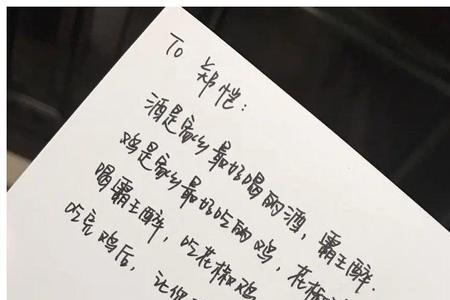 To 郑恺:
酒是家乡最好喝的酒，霸王醉.
鸡是家乡最好吃的鸡，花椒
喝霸王醉，吃花椒鸡
吃完鸡后，让你